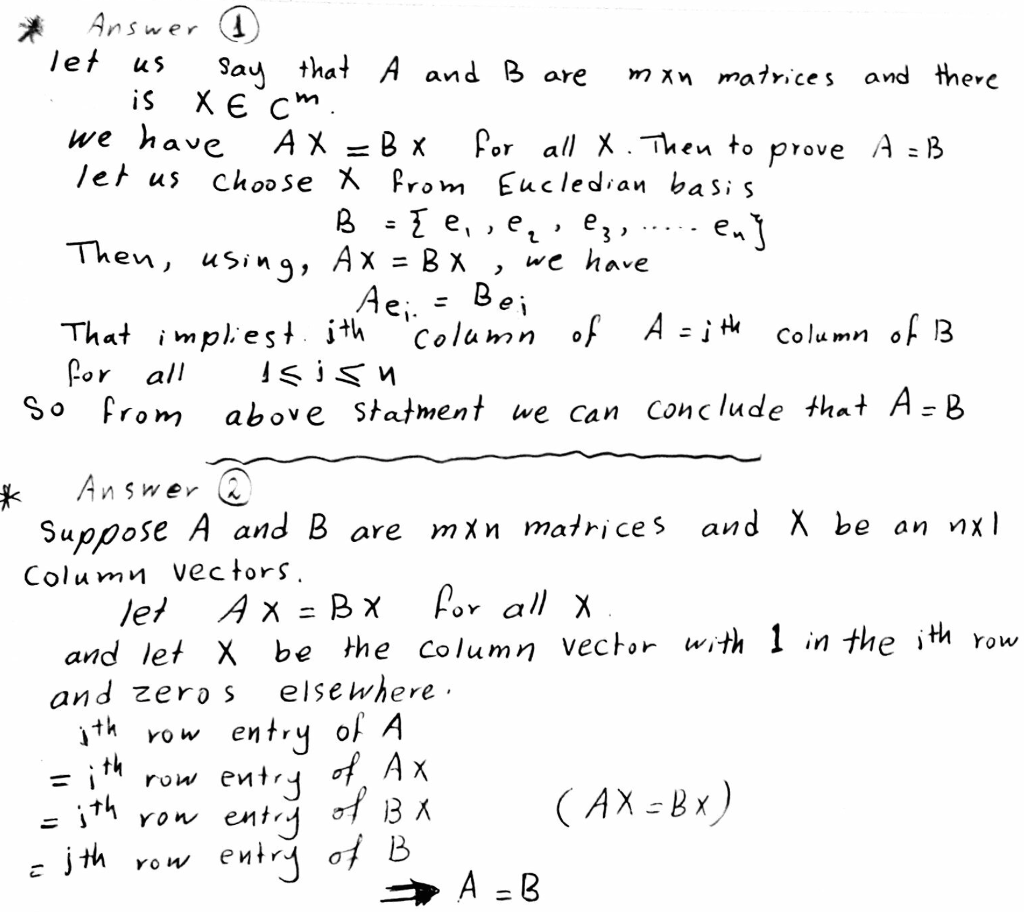 * Answer ①
let us say that A and B are m×n matrices and there
is X ∈ C^m.
we have AX = BX for all X. Then to prove A = B
let us choose X from Eucledian basis
B = {e₁, e₂, e₃, ..... eₙ}
Then, using, AX = BX, we have
Aeᵢ. = Beᵢ
That impliest. ith column of A = ith column of B
for all 1 ≤ i ≤ n
So from above statment we can conclude that A = B
* Answer ②
Suppose A and B are m×n matrices and X be an n×1
Column vectors.
let AX = BX for all X.
and let X be the column vector with 1 in the ith row
and zeros elsewhere.
ith row entry of A
= ith row entry of AX
= ith row entry of BX (AX = BX)
= ith row entry of B
⇒ A = B